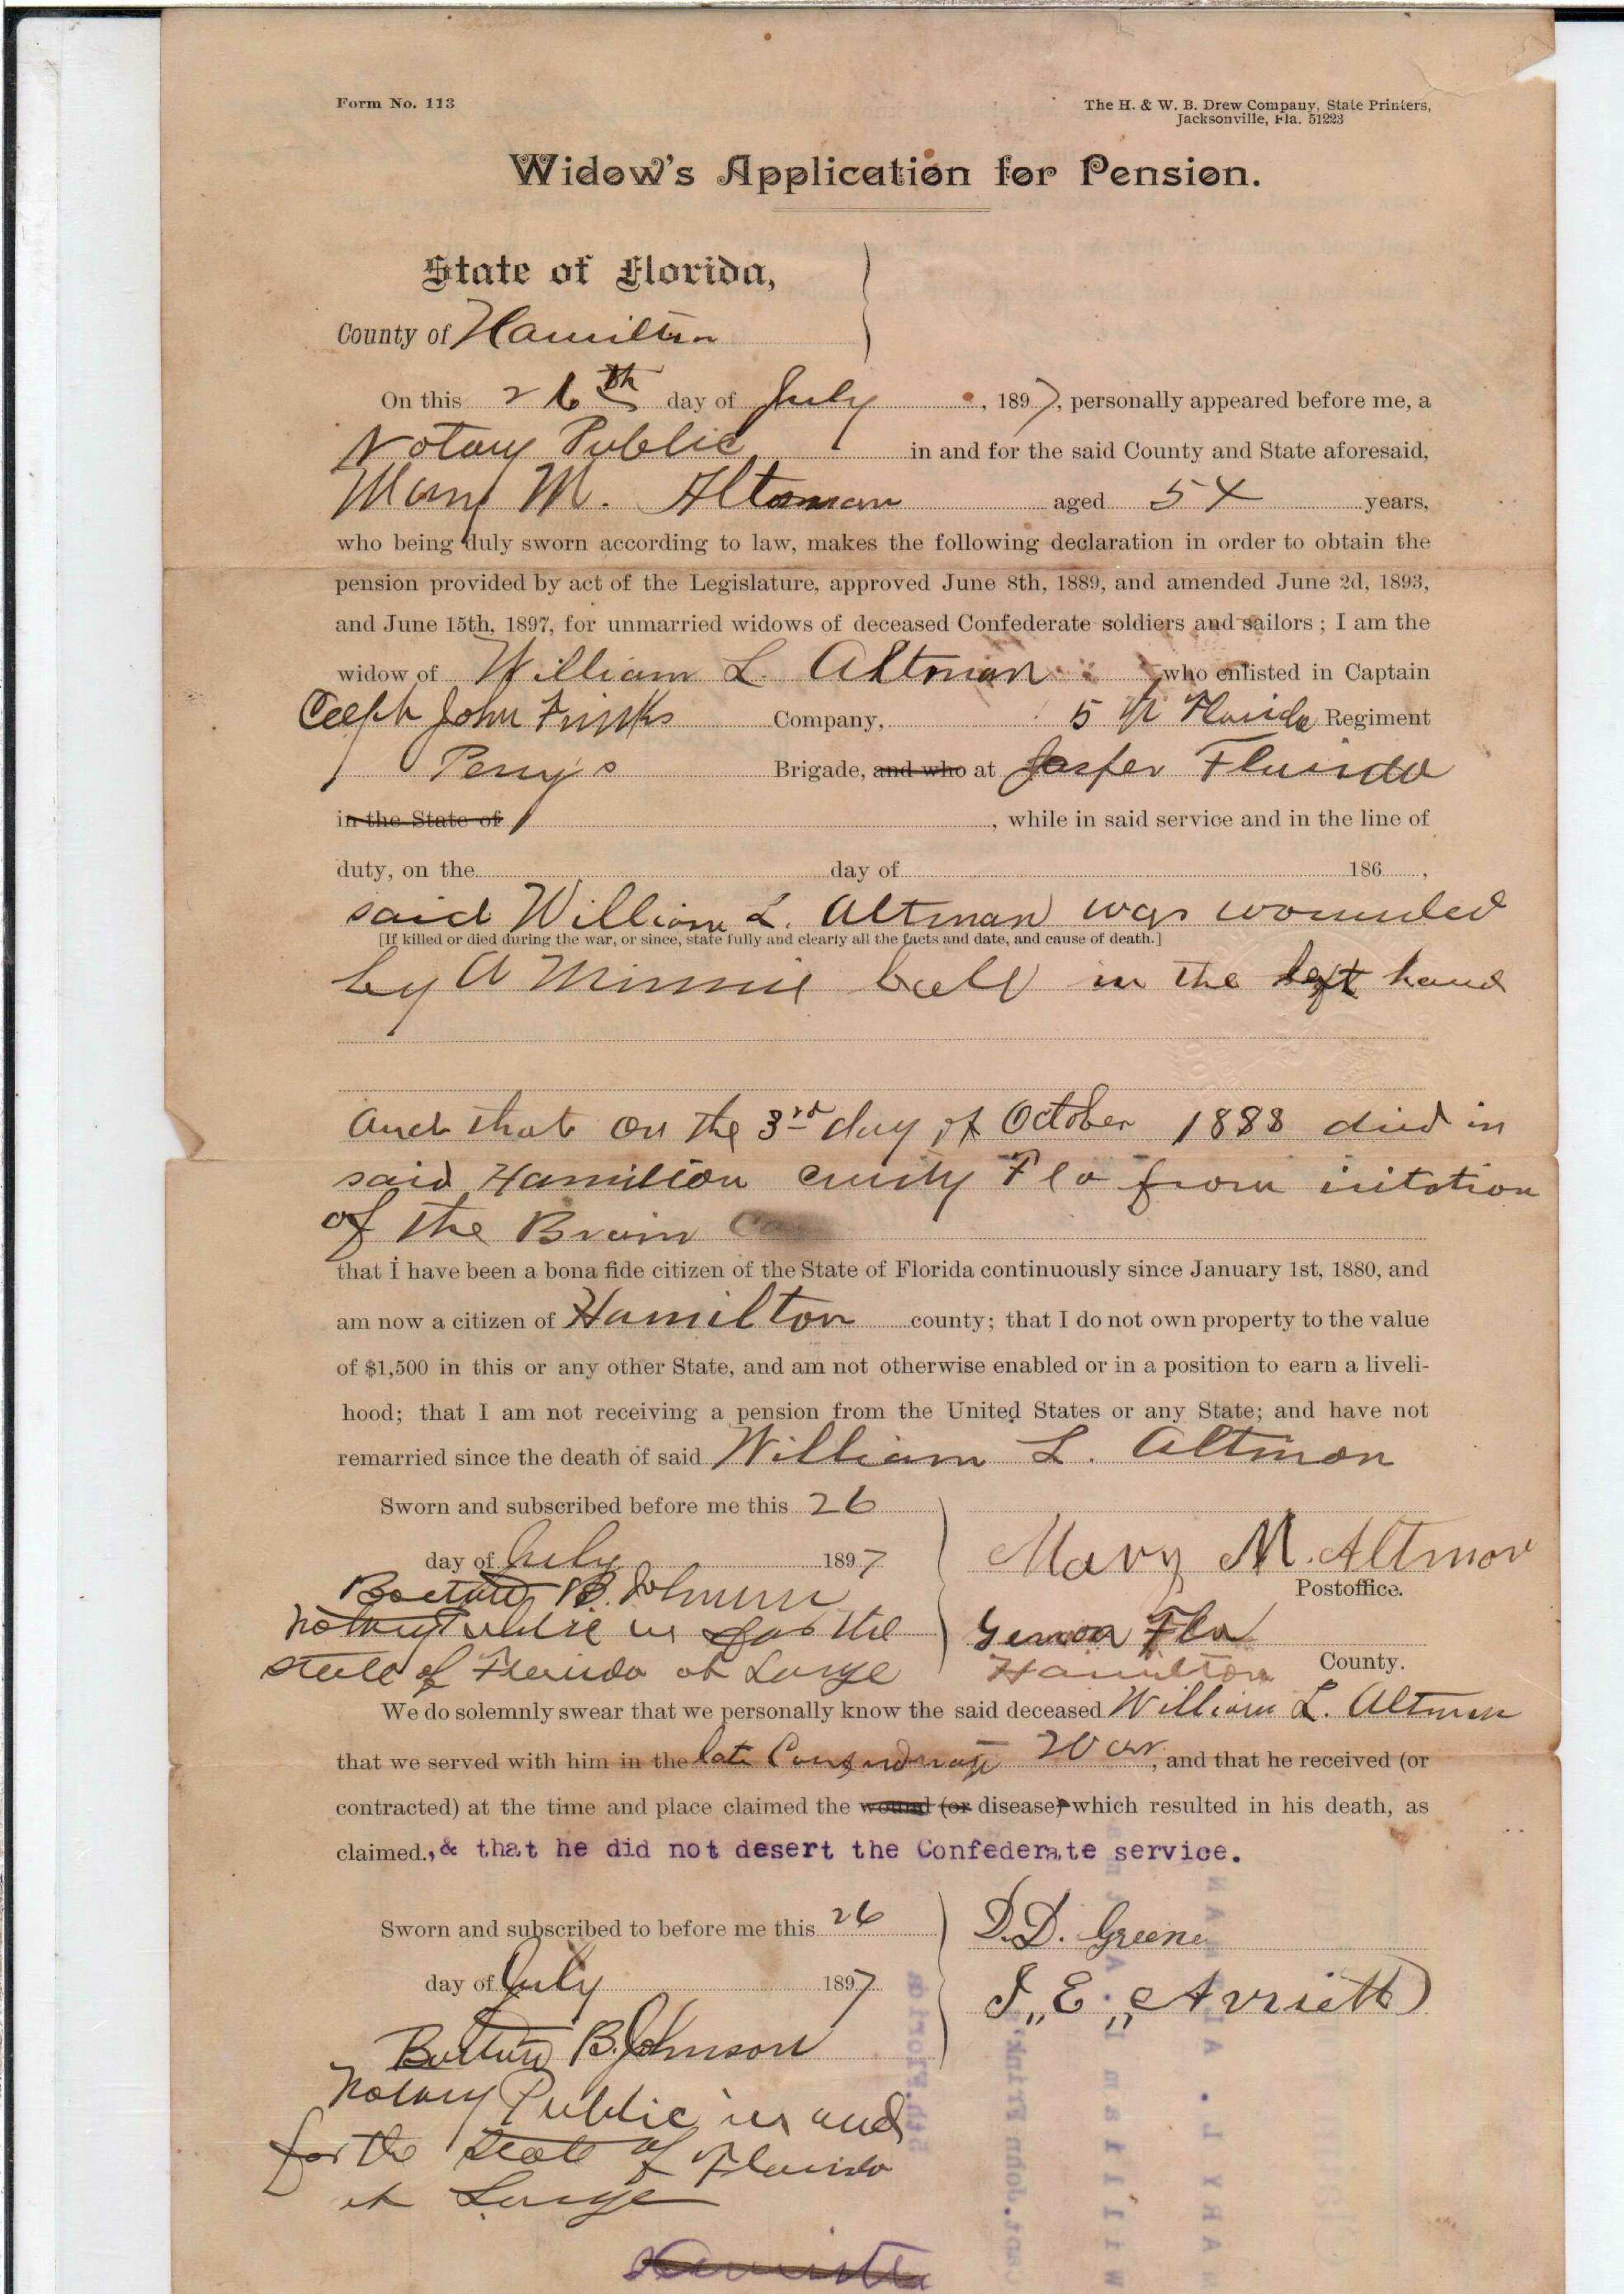 Form No. 113
The H. & W. B. Drew Company, State Printers,
Jacksonville, Fla. 51223
Widow's Application for Pension.
State of Florida,
County of Hamilton
On this 26th day of July, 1897, personally appeared before me, a
Notary Public in and for the said County and State aforesaid,
Mary M. Altman aged 54 years,
who being duly sworn according to law, makes the following declaration in order to obtain the
pension provided by act of the Legislature, approved June 8th, 1889, and amended June 2d, 1893,
and June 15th, 1897, for unmarried widows of deceased Confederate soldiers and sailors; I am the
widow of William L. Altman who enlisted in Captain
John Frinks Company, 5th Florida Regiment
Perrys Brigade, and who at Jasper Florida
in the State of , while in said service and in the line of
duty, on the day of 186 ,
said William L. Altman was wounded
[If killed or died during the war, or since, state fully and clearly all the facts and date, and cause of death.]
by a Minnie ball in the left hand
and that on the 3rd day of October 1888 died in
said Hamilton county Fla from iritation
of the Brain
that I have been a bona fide citizen of the State of Florida continuously since January 1st, 1880, and
am now a citizen of Hamilton county; that I do not own property to the value
of $1,500 in this or any other State, and am not otherwise enabled or in a position to earn a liveli-
hood; that I am not receiving a pension from the United States or any State; and have not
remarried since the death of said William L. Altman
Sworn and subscribed before me this 26
day of July 1897
Mary M. Altman
Postoffice.
B. Johnson
Notary Public in for the
Genoa Fla
State of Florida at Large
Hamilton County.
We do solemnly swear that we personally know the said deceased William L. Altman
that we served with him in the late Confederate War, and that he received (or
contracted) at the time and place claimed the wound (or disease) which resulted in his death, as
claimed., & that he did not desert the Confederate service.
Sworn and subscribed to before me this 26
D.D. Greene
day of July 1897
J,, E,, Avriett
B. Johnson
Notary Public in and
for the State of Florida
at Large